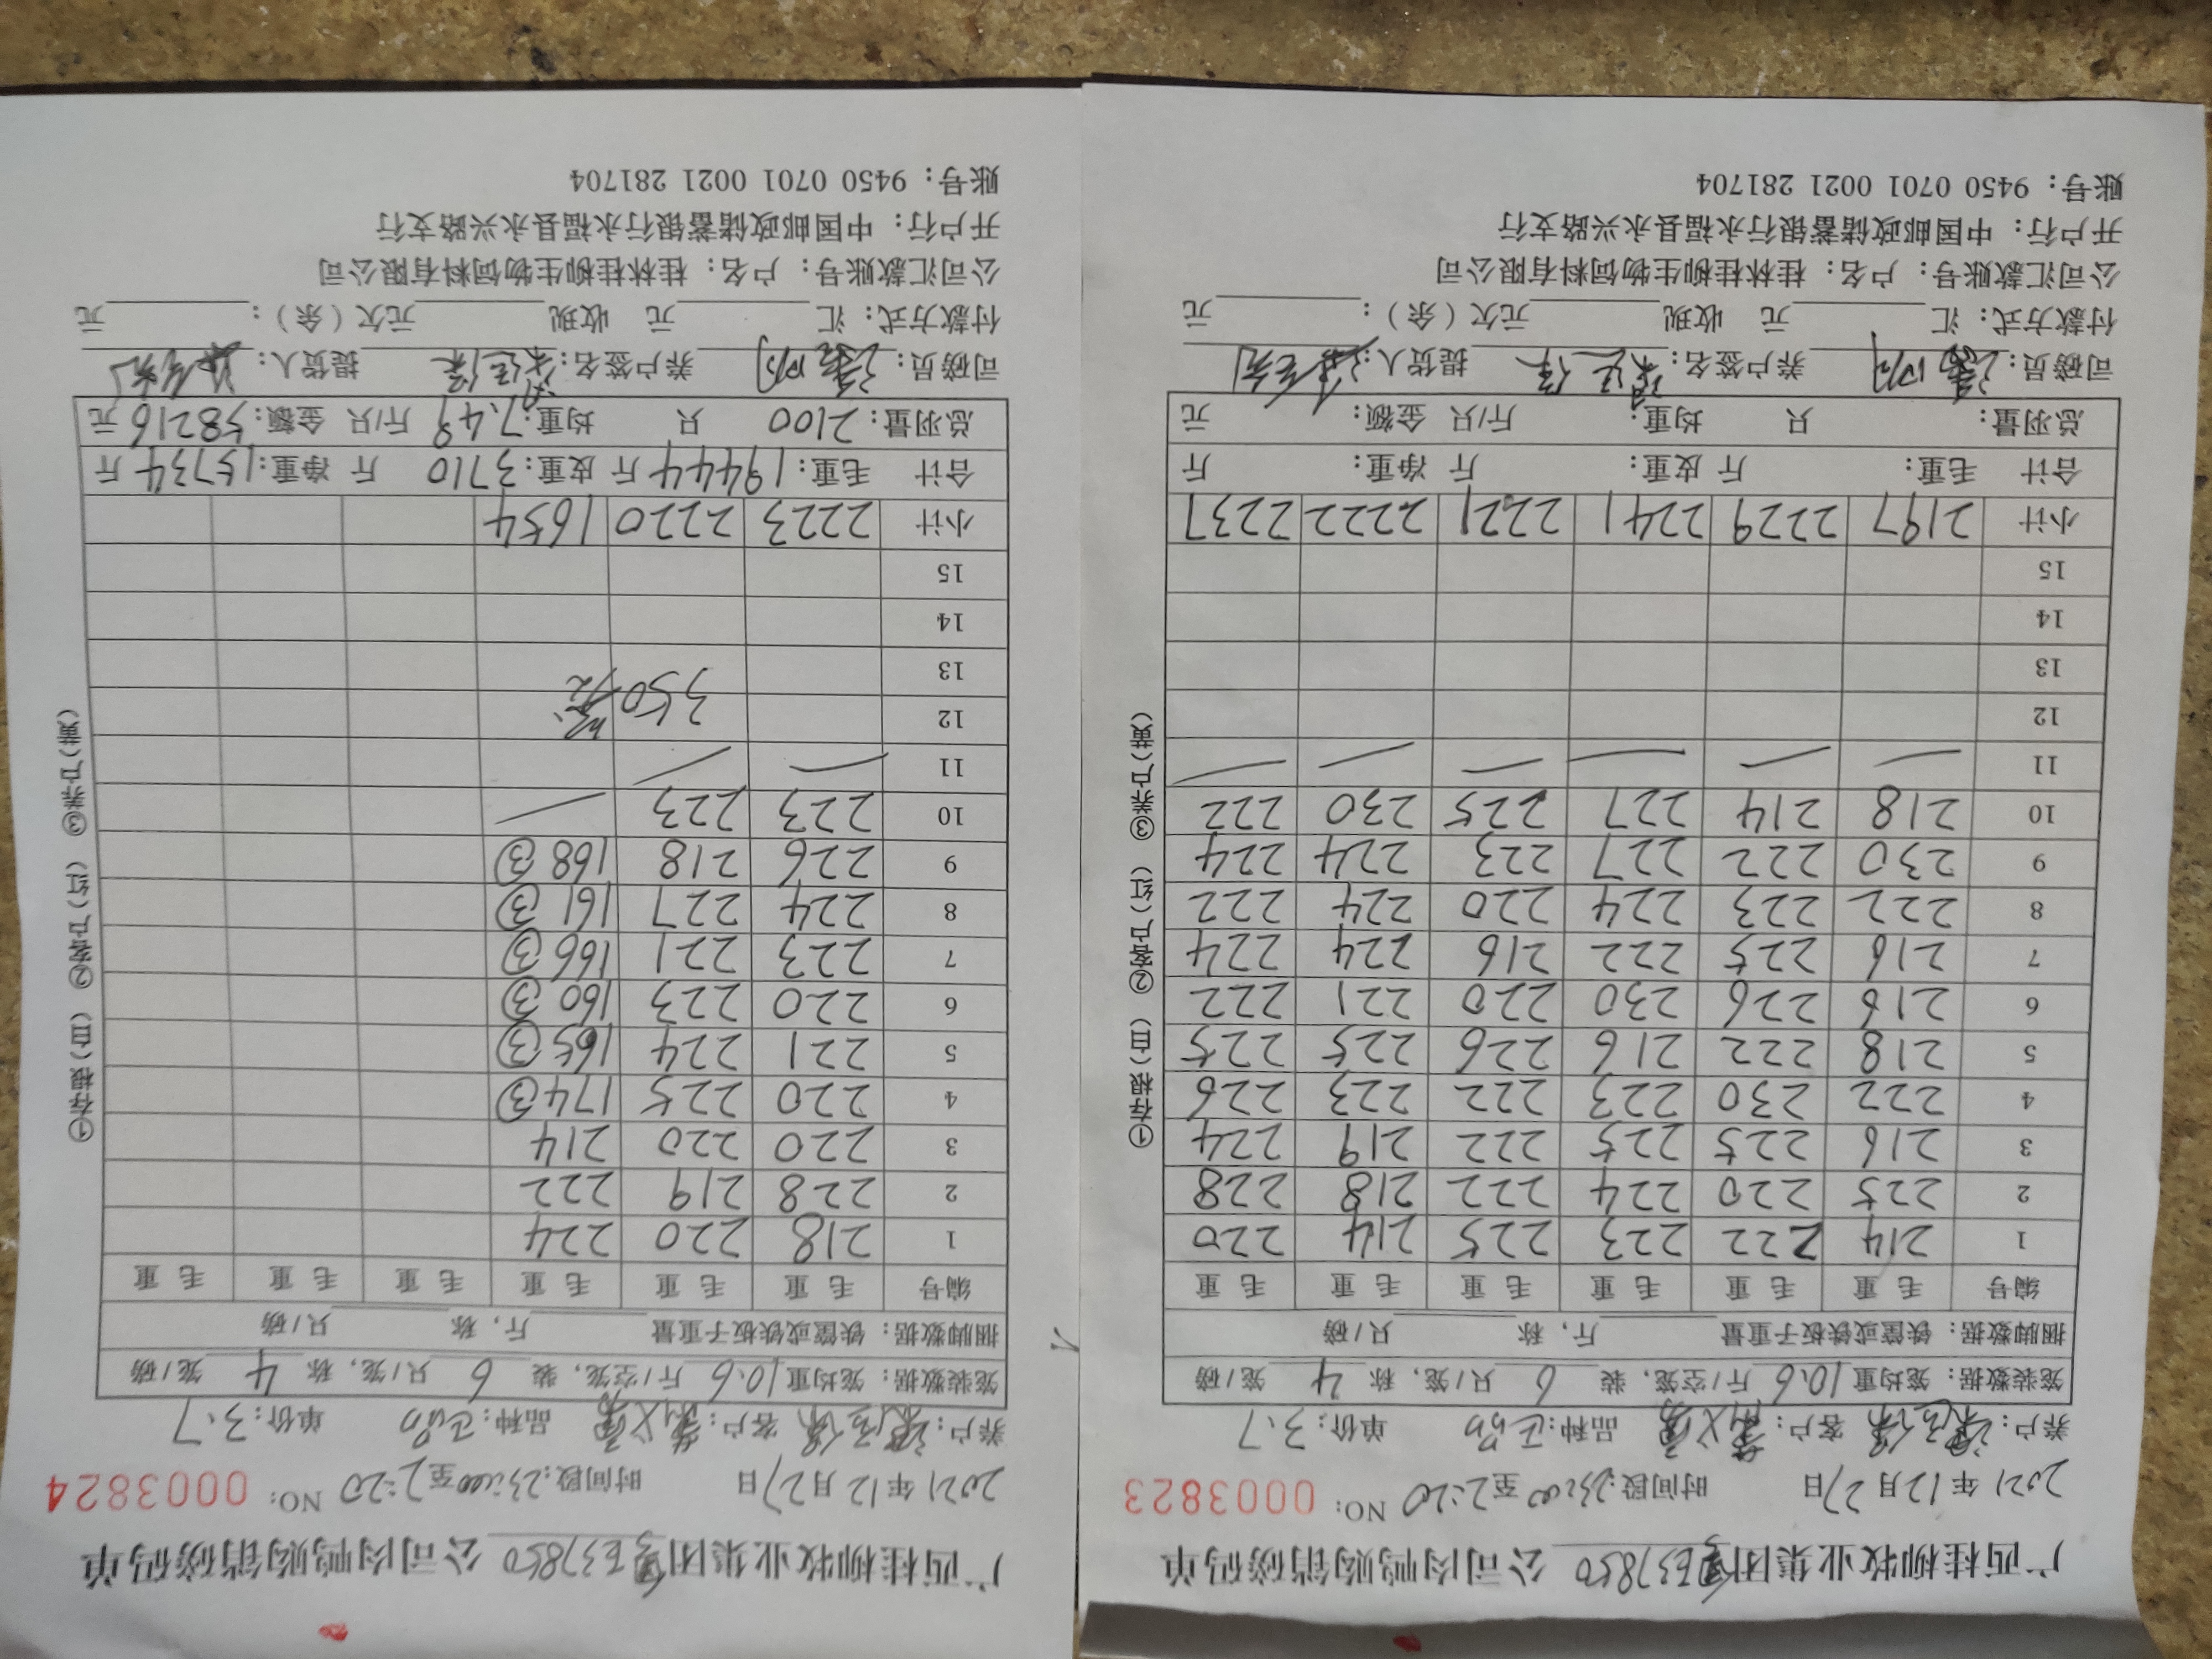 广西桂柳牧业集团粤E37850公司肉鸭购销磅码单
2021年12月27日 时间段:23:00至2:20 NO: 0003823
养户: 客户: 品种:正品 单价:3.7
笼装数据:笼均重10.6斤/空笼,装6只/笼,称4笼/磅
捆脚数据:铁筐或铁板子重量 斤,称 只/磅
编号 毛重 毛重 毛重 毛重 毛重 毛重
1 214 222 223 225 214 220
2 225 220 224 222 218 228
3 216 225 225 222 219 224
4 222 230 223 222 223 226
5 218 222 216 226 225 225
6 216 226 230 220 221 222
7 216 225 222 216 224 224
8 222 223 224 220 224 222
9 230 222 227 223 224 224
10 218 214 227 225 230 222
11 — — — — — —
12
13
14
15
小计 2197 2229 2241 2221 2222 2237
合计 毛重: 斤 皮重: 斤 净重: 斤
总羽量: 只 均重: 斤/只 金额: 元
司磅员: 养户签名: 提货人:
付款方式:汇 元 收现 元欠(余): 元
公司汇款账号:户名:桂林桂柳生物饲料有限公司
开户行:中国邮政储蓄银行永福县永兴路支行
账号:9450 0701 0021 281704
①存根(白) ②客户(红) ③养户(黄)
广西桂柳牧业集团粤E37850公司肉鸭购销磅码单
2021年12月27日 时间段:23:00至2:20 NO: 0003824
养户: 客户: 品种:正品 单价:3.7
笼装数据:笼均重10.6斤/空笼,装6只/笼,称4笼/磅
捆脚数据:铁筐或铁板子重量 斤,称 只/磅
编号 毛重 毛重 毛重 毛重 毛重 毛重
1 218 220 224
2 228 219 222
3 220 220 214
4 220 225 174③
5 221 224 165③
6 220 223 160③
7 223 221 166③
8 224 227 161③
9 226 218 168③
10 223 223 —
11 — —
12 350
13
14
15
小计 2223 2220 1654
合计 毛重:19444斤 皮重:3710斤 净重:15734斤
总羽量:2100只 均重:7.49斤/只 金额:58216元
司磅员: 养户签名: 提货人:
付款方式:汇 元 收现 元欠(余): 元
公司汇款账号:户名:桂林桂柳生物饲料有限公司
开户行:中国邮政储蓄银行永福县永兴路支行
账号:9450 0701 0021 281704
①存根(白) ②客户(红) ③养户(黄)